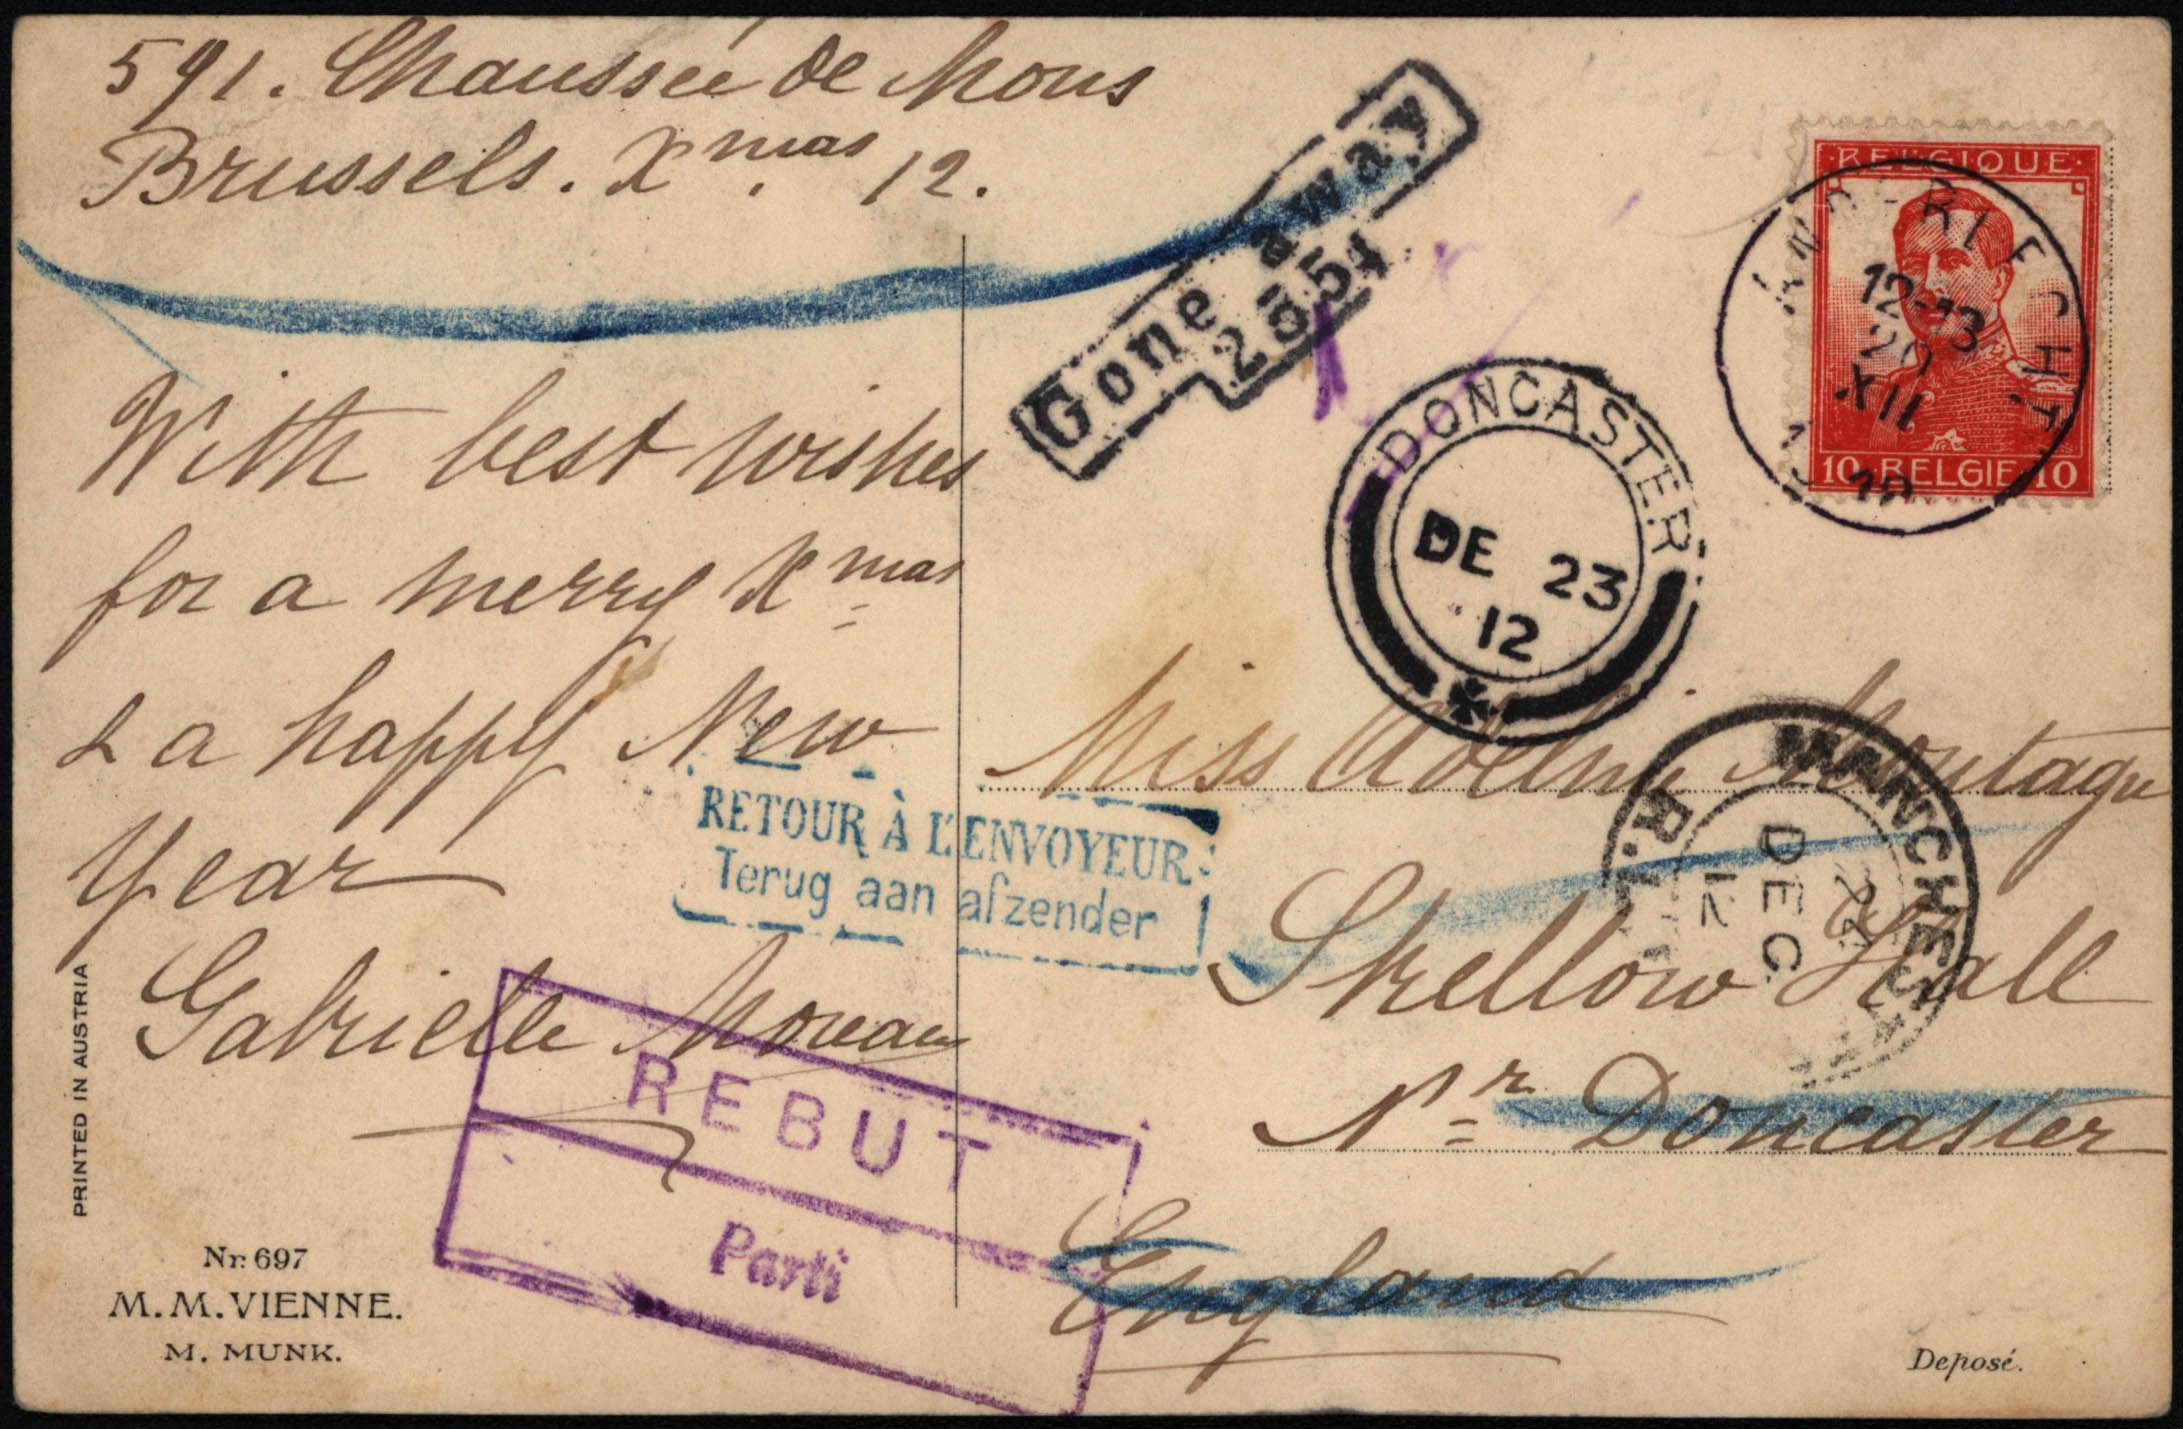 591. Chaussée de Mons
Brussels. Xmas 12.
With best wishes
for a merry Xmas
& a happy New
Year
Gabrielle Moreau
Gone away
2351
BELGIQUE
10 BELGIE 10
12-13
XII
DONCASTER
DE 23
12
MANCHESTER
R.L.
24
DEC
12
Miss Montagu
Skellow Hall
Nr Doncaster
England
RETOUR À L'ENVOYEUR
Terug aan afzender
REBUT
Parti
PRINTED IN AUSTRIA
Nr. 697
M. M. VIENNE.
M. MUNK.
Deposé.